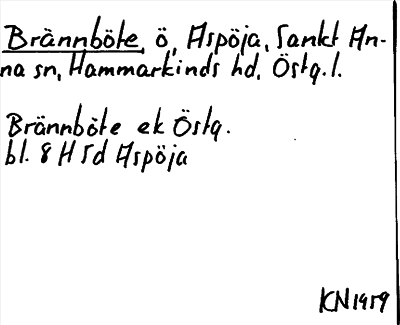 Brännböte, ö, Aspöja, Sankt An-
na sn, Hammarkinds hd, Östg. l.
Brännböte ek Östg.
bl. 8 H Sd Aspöja
KN 1959